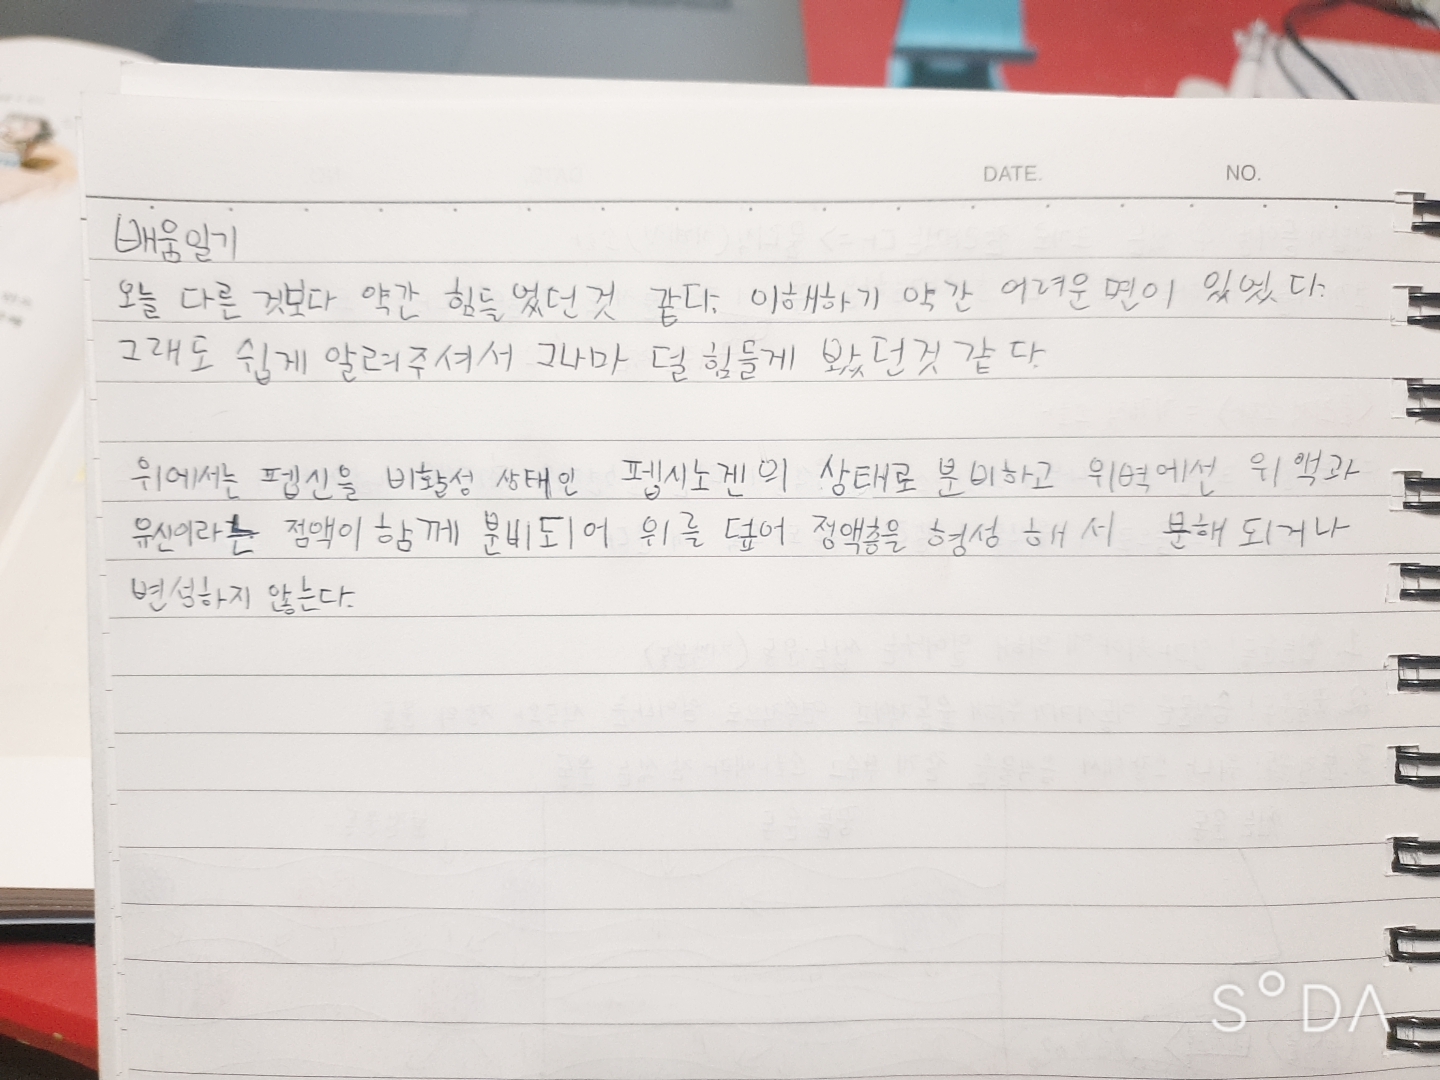 DATE. NO.
배움일기
오늘 다른 것보다 약간 힘들었던것 같다. 이해하기 약간 어려운면이 있었다.
그래도 쉽게 알려주셔서 그나마 덜 힘들게 봤던것같다.
위에서는 펩신을 비활성 상태인 펩시노겐의 상태로 분비하고 위벽에선 위액과
뮤신이라는 점액이 함께 분비되어 위를 덮어 점액층을 형성해서 분해되거나
변석하지 않는다.
SODA